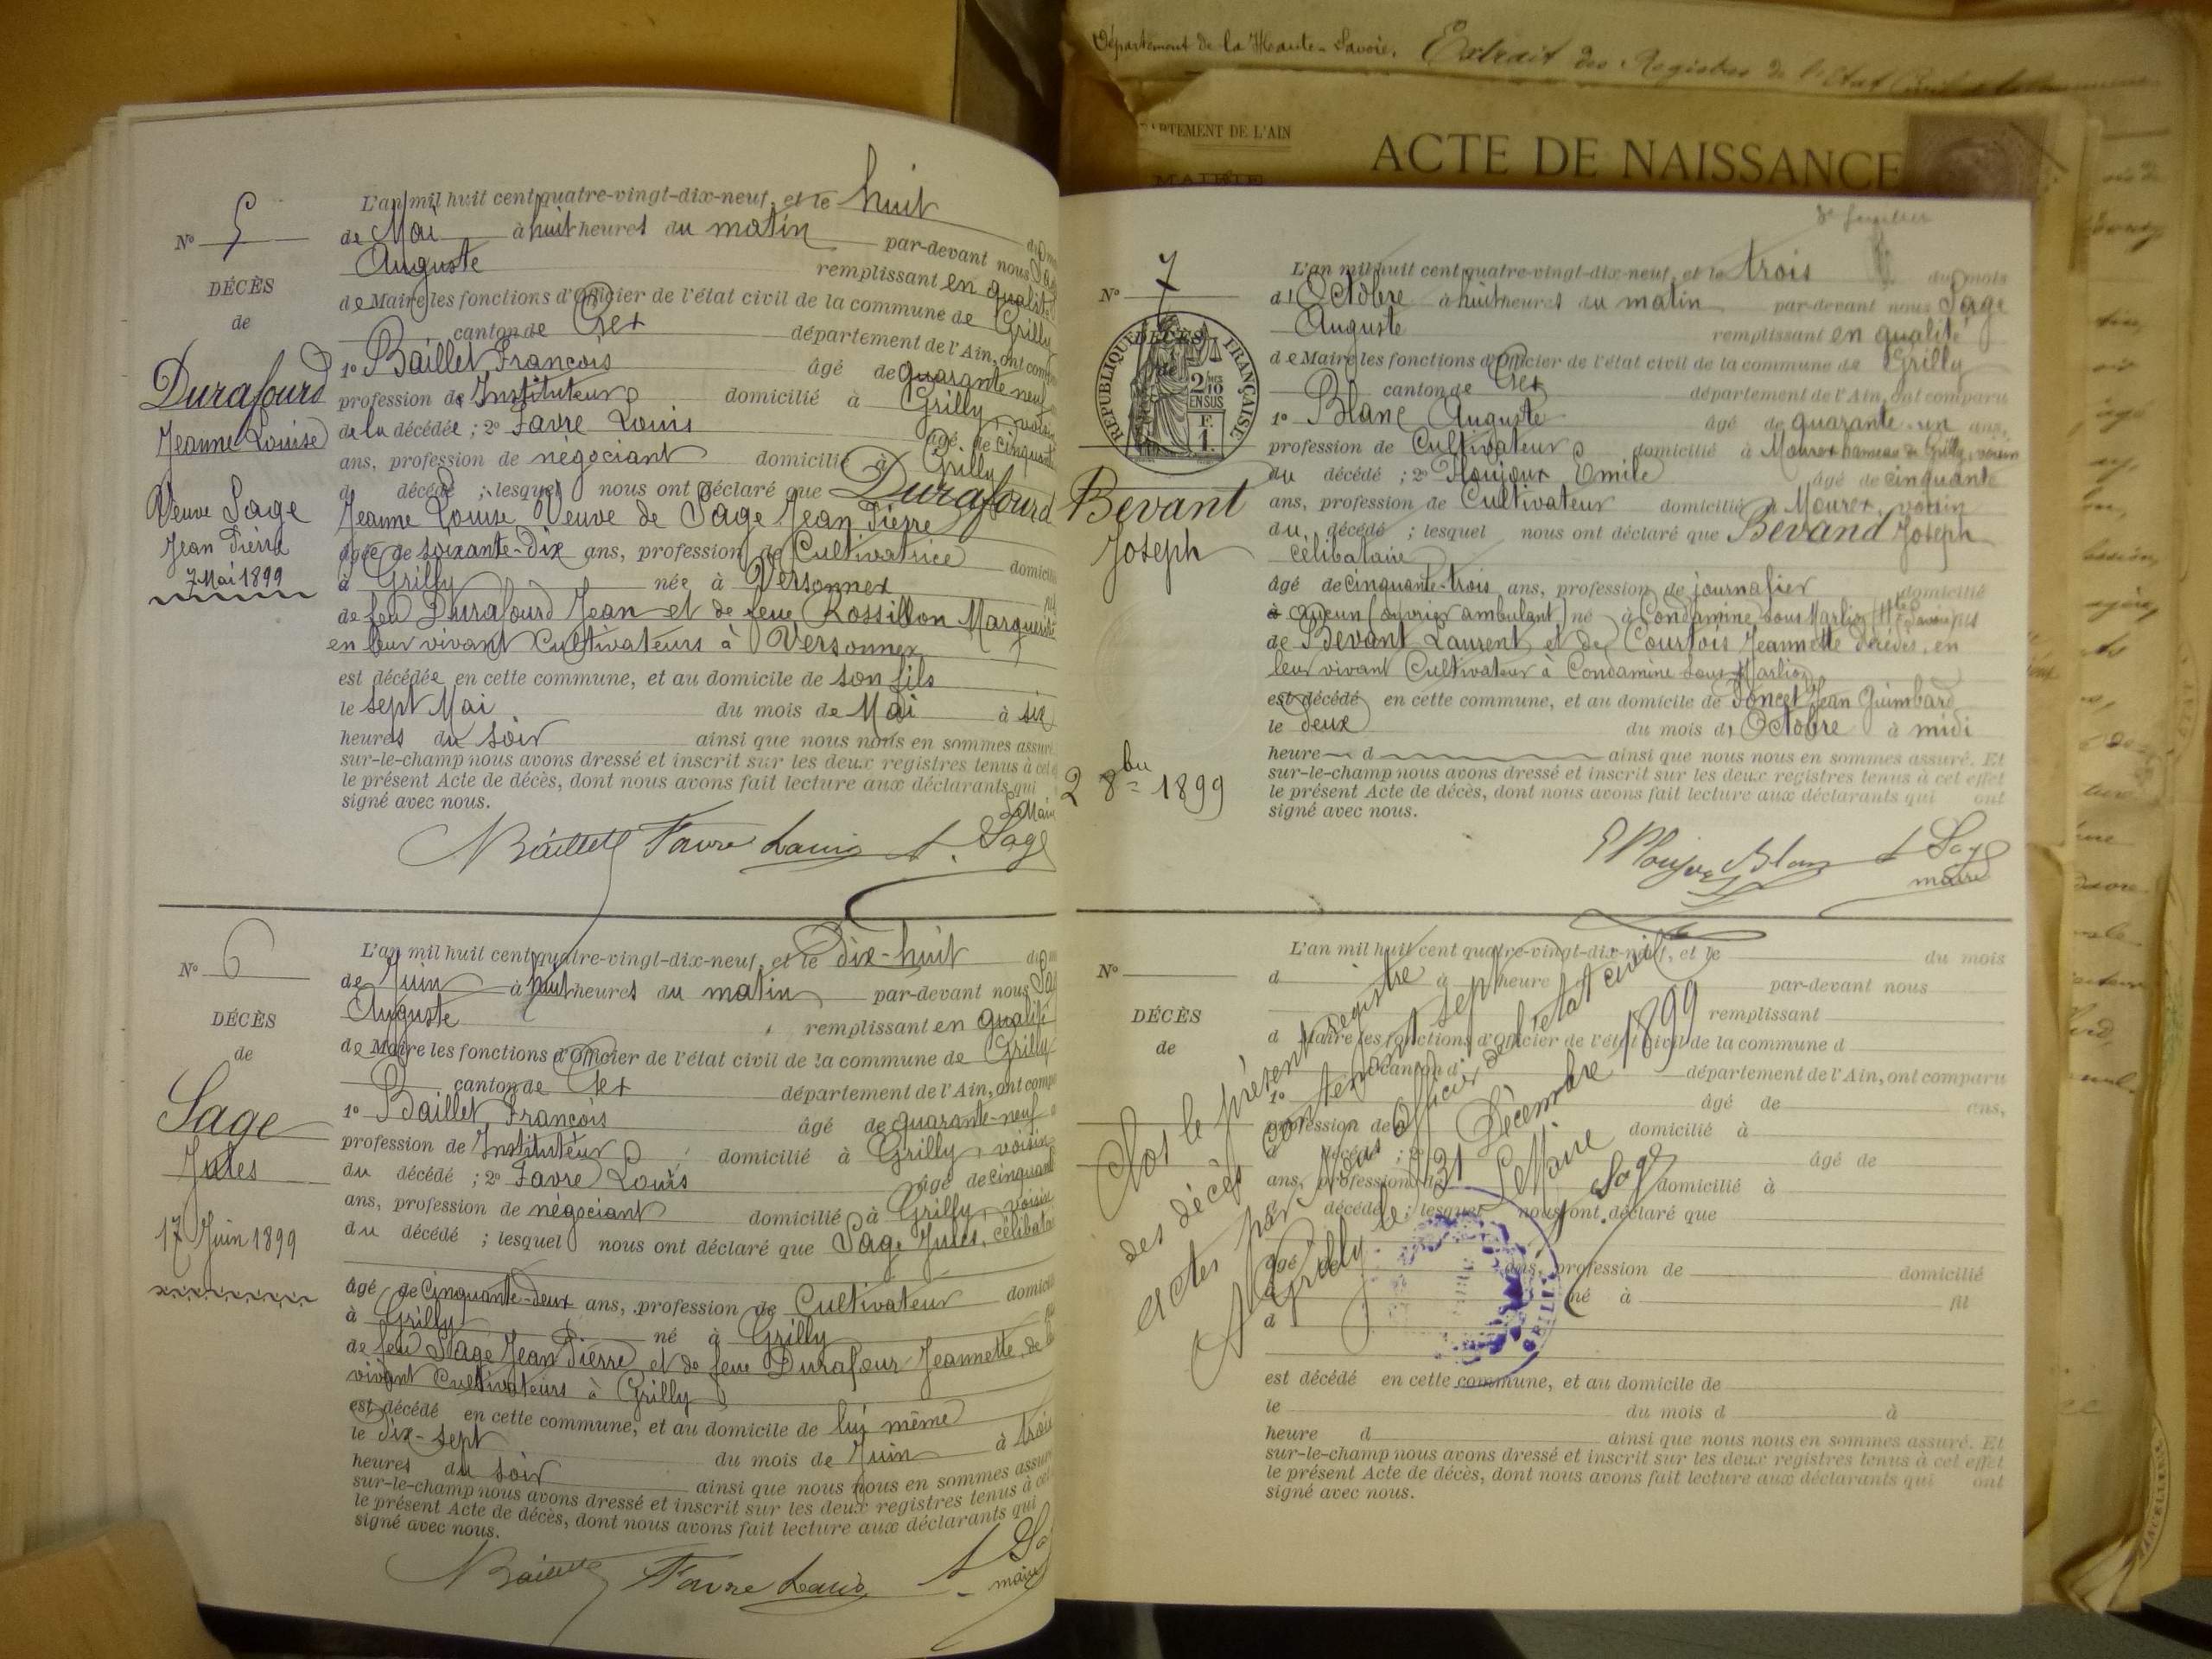 Département de la Haute-Savoie. Extrait des Registres de l'Etat Civil
DÉPARTEMENT DE L'AIN
ACTE DE NAISSANCE
MAIRIE
N° 5
DÉCÈS
de
Durafourd
Jeanne Louise
Veuve Sage
Jean Pierre
7 Mai 1899
L'an mil huit cent quatre-vingt-dix-neuf, et le huit
de Mai à huit heures du matin par-devant nous
Auguste remplissant en qualité
de Maire les fonctions d'Officier de l'état civil de la commune de Grilly
canton de Gex département de l'Ain, ont
1° Baillet François âgé de quarante neuf
profession de Instituteur domicilié à Grilly, voisin
de la décédée ; 2° Favre Louis âgé de cinquante
ans, profession de négociant domicilié à Grilly
d décédé ; lesquel nous ont déclaré que Durafourd
Jeanne Louise Veuve de Sage Jean Pierre
âgée de soixante-dix ans, profession de Cultivatrice
à Grilly née à Versonnex
de feu Durafourd Jean et de feue Rossillon Marguerite
en leur vivant Cultivateurs à Versonnex
est décédée en cette commune, et au domicile de son fils
le sept Mai du mois de Mai à six
heures du soir ainsi que nous nous en sommes assuré
sur-le-champ nous avons dressé et inscrit sur les deux registres tenus à cet
le présent Acte de décès, dont nous avons fait lecture aux déclarants qui
signé avec nous.
Le Maire
Baillet Favre Louis A. Sage
N° 6
DÉCÈS
de
Sage
Jules
17 Juin 1899
L'an mil huit cent quatre-vingt-dix-neuf, et le dix-huit
de Juin à huit heures du matin par-devant nous
Auguste remplissant en qualité
de Maire les fonctions d'Officier de l'état civil de la commune de Grilly
canton de Gex département de l'Ain, ont
1° Baillet François âgé de quarante-neuf
profession de Instituteur domicilié à Grilly, voisin
du décédé ; 2° Favre Louis âgé de cinquante
ans, profession de négociant domicilié à Grilly, voisin
du décédé ; lesquel nous ont déclaré que Sage Jules, célibataire
âgé de cinquante-deux ans, profession de Cultivateur
à Grilly né à Grilly
de feu Sage Jean Pierre et de feue Durafour Jeannette, de
vivant Cultivateurs à Grilly
est décédé en cette commune, et au domicile de lui même
le dix-sept du mois de Juin à trois
heures du soir ainsi que nous nous en sommes assuré
sur-le-champ nous avons dressé et inscrit sur les deux registres tenus à cet
le présent Acte de décès, dont nous avons fait lecture aux déclarants qui
signé avec nous.
Baillet Favre Louis A
maire
N° 7
DÉCÈS
de
RÉPUBLIQUE FRANÇAISE
2/10 EN SUS
F. 1.
Bevant
Joseph
2 8bre 1899
L'an mil huit cent quatre-vingt-dix-neuf, et le trois du mois
d'Octobre à huit heures du matin par-devant nous Sage
Auguste remplissant en qualité
de Maire les fonctions d'Officier de l'état civil de la commune de Grilly
canton de Gex département de l'Ain, ont comparu
1° Blanc Auguste âgé de quarante-un ans,
profession de Cultivateur domicilié à Mourex hameau de Grilly, voisin
du décédé ; 2° Ploujoux Emile âgé de cinquante
ans, profession de Cultivateur domicilié à Mourex, voisin
du décédé ; lesquel nous ont déclaré que Bevand Joseph
célibataire
âgé de cinquante-trois ans, profession de journalier domicilié
à aucun (ouvrier ambulant) né à Condamine sous Marlioz (Hte Savoie) fils
de Bevant Laurent et de Courtois Jeannette décédés, en
leur vivant Cultivateur à Condamine sous Marlioz
est décédé en cette commune, et au domicile de Poncet Jean Guimbard
le deux du mois d'Octobre à midi
heure d ainsi que nous nous en sommes assuré. Et
sur-le-champ nous avons dressé et inscrit sur les deux registres tenus à cet effet
le présent Acte de décès, dont nous avons fait lecture aux déclarants qui ont
signé avec nous.
E Ploujoux Blanc A Sage
maire
N°
DÉCÈS
de
L'an mil huit cent quatre-vingt-dix-neuf, et le du mois
d à heure par-devant nous
remplissant
d Maire les fonctions d'Officier de l'état civil de la commune d
canton d département de l'Ain, ont comparu
1° âgé de ans,
profession de domicilié à
d décédé ; 2° âgé de
ans, profession de domicilié à
d décédé ; lesquel nous ont déclaré que
âgé de ans, profession de domicilié
à né à fil
d
est décédé en cette commune, et au domicile de
le du mois d à
heure d ainsi que nous nous en sommes assuré. Et
sur-le-champ nous avons dressé et inscrit sur les deux registres tenus à cet effet
le présent Acte de décès, dont nous avons fait lecture aux déclarants qui ont
signé avec nous.
Clos le présent registre
des décès contenant sept
actes par Nous Officier de l'état civil
A Grilly le 31 Décembre 1899
Le Maire
A. Sage